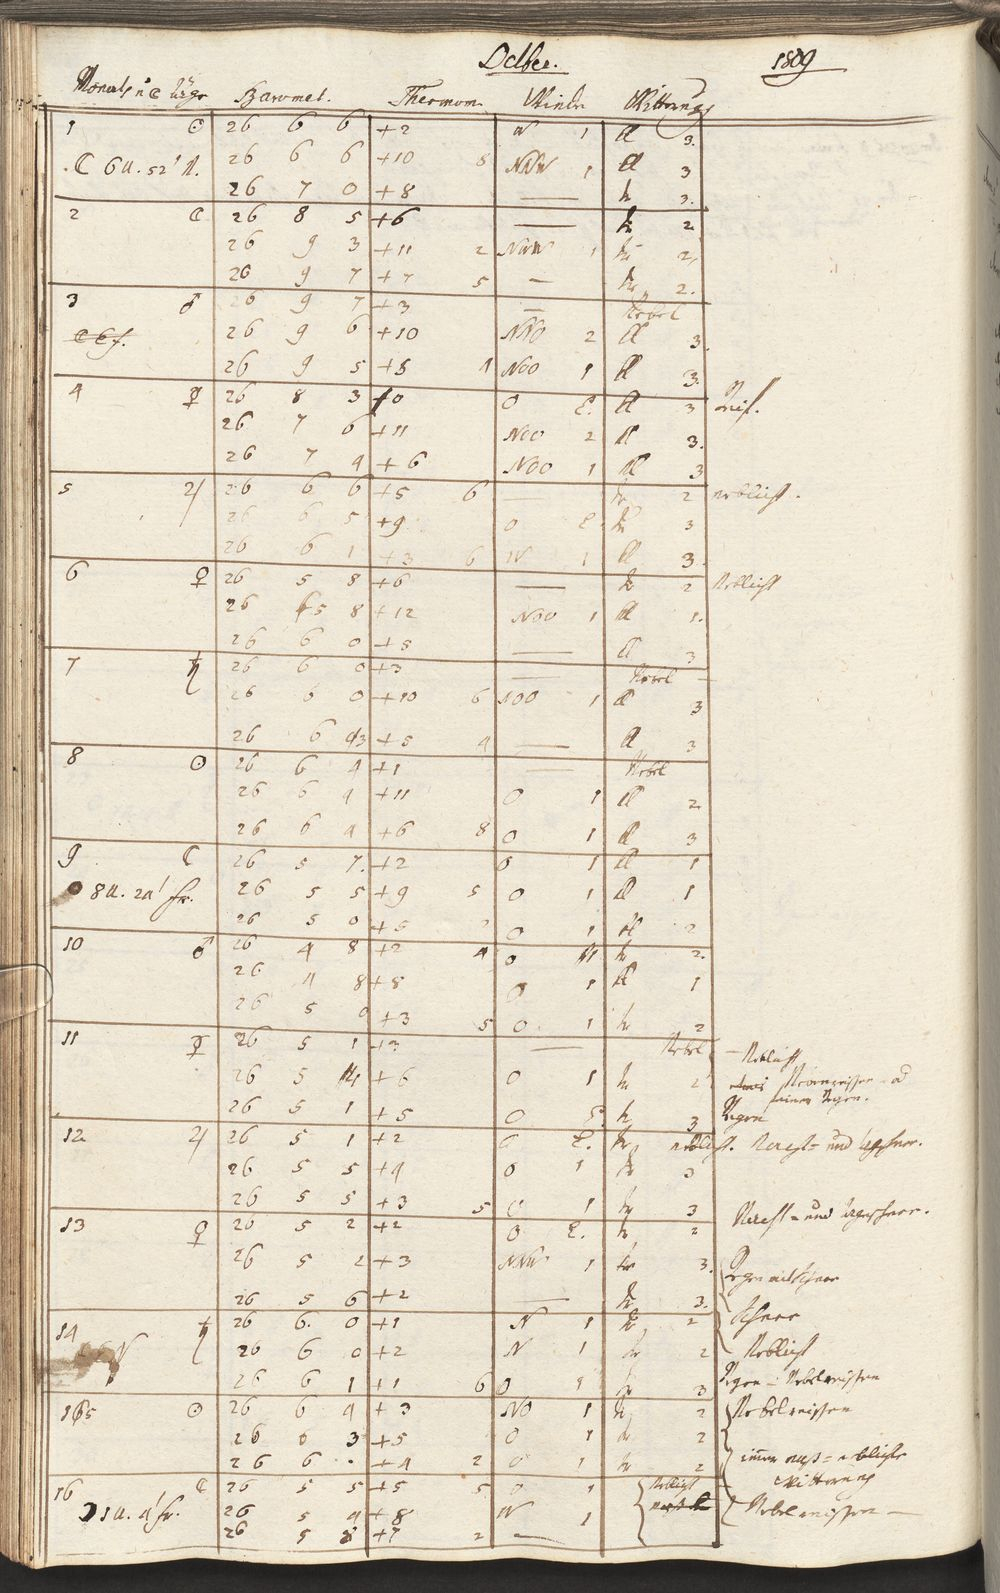 Octber. 1809
Monats u ☾ Täge Baromet. Thermom Winde Witterung
1 ☉ 26 6 6 +2 N 1 d 3.
☾ 6 U. 52' N. 26 6 6 +10 8 NNW 1 d 3
26 7 0 +8 — tr 2.
2 ☾ 26 8 5 +6 — tr 2
26 9 3 +11 2 NNW 1 tr 2
26 9 7 +7 5 — tr 2.
3 ♂ 26 9 7 +3 — Nebel
26 9 6 +10 NNO 2 d 3.
26 9 5 +8 4 NOO 1 d 3.
4 ☿ 26 8 3 +0 O d 3 Reif.
26 7 6 +11 NOO 2 d 3.
26 7 4 +6 NOO 1 d 3
5 ♃ 26 6 6 +5 6 — tr 2 neblicht.
26 6 5 +9 O tr 3
26 6 1 +3 6 N 1 d 3.
6 ♀ 26 5 8 +6 — tr 2 Neblicht
26 5 8 +12 NOO 1 d 1.
26 6 0 +5 — d 3
7 ♄ 26 6 0 +3 — Nebel —
26 6 0 +10 6 NOO 1 d 3
26 6 3 +5 4 — d 3
8 ☉ 26 6 4 +1 — Nebel
26 6 4 +11 O 1 d 2
26 6 4 +6 8 O 1 d 3
9 ☾ 26 5 7. +2 O 1 d 1
● 8 U. 24' fr. 26 5 5 +9 5 O 1 d 1
26 5 0 +5 O 1 d 2
10 ♂ 26 4 8 +2 4 O 1 tr 2.
26 4 8 +8 O 1 d 1
26 5 0 +3 5 O 1 tr 2
11 ☿ 26 5 1 +3 — Nebel — Neblicht
26 5 1 +6 O 1 tr 2 Nebenreissen
feiner Regen.
26 5 1 +5 O tr 3 Regen
12 ♃ 26 5 1 +2 O tr neblicht. Nacht= und Tagschnee.
26 5 5 +4 O 1 tr 3
26 5 5 +3 5 O 1 tr 3
13 ♀ 26 5 2 +2 O tr 2 Nacht= und Tagschnee.
26 5 2 +3 NNW 1 tr 3. Regen mit Schnee
26 5 6 +2 — tr 3.
14 ♄ 26 6 0 +1 N 1 tr 2 Schnee
26 6 0 +2 N 1 tr 2 Neblicht
26 6 1 +1 6 O 1 tr 3 Regen = Nebelreissen
15 ☉ 26 6 4 +3 NO 1 tr 2 Nebelreissen
26 6 3 +5 O 1 tr 2
26 6 . +4 2 O 1 tr 2 immer naß= neblichte
Witterung
16 ☾ 26 5 5 +5 5 O 1 Neblicht
☽ 1 U. 4' fr. 26 5 4 +8 N 1 Nebelreissen —
26 5 8 +7 2 —